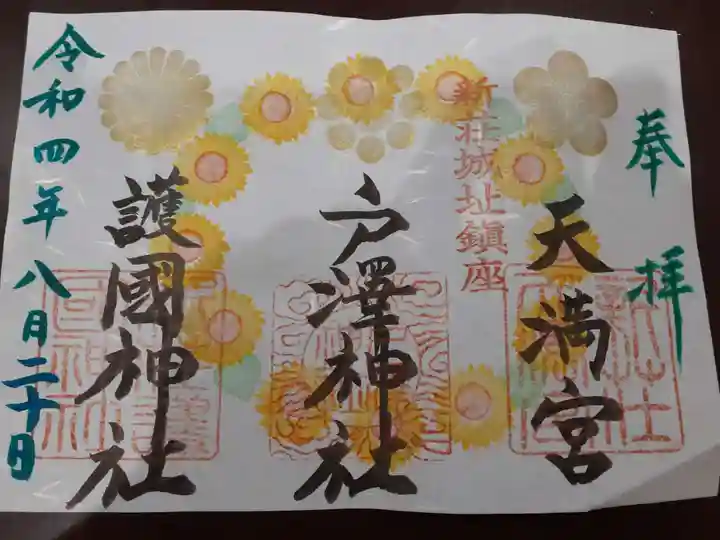 奉拝
天満宮
新荘城址鎮座
戸澤神社
護國神社
令和四年八月二十日